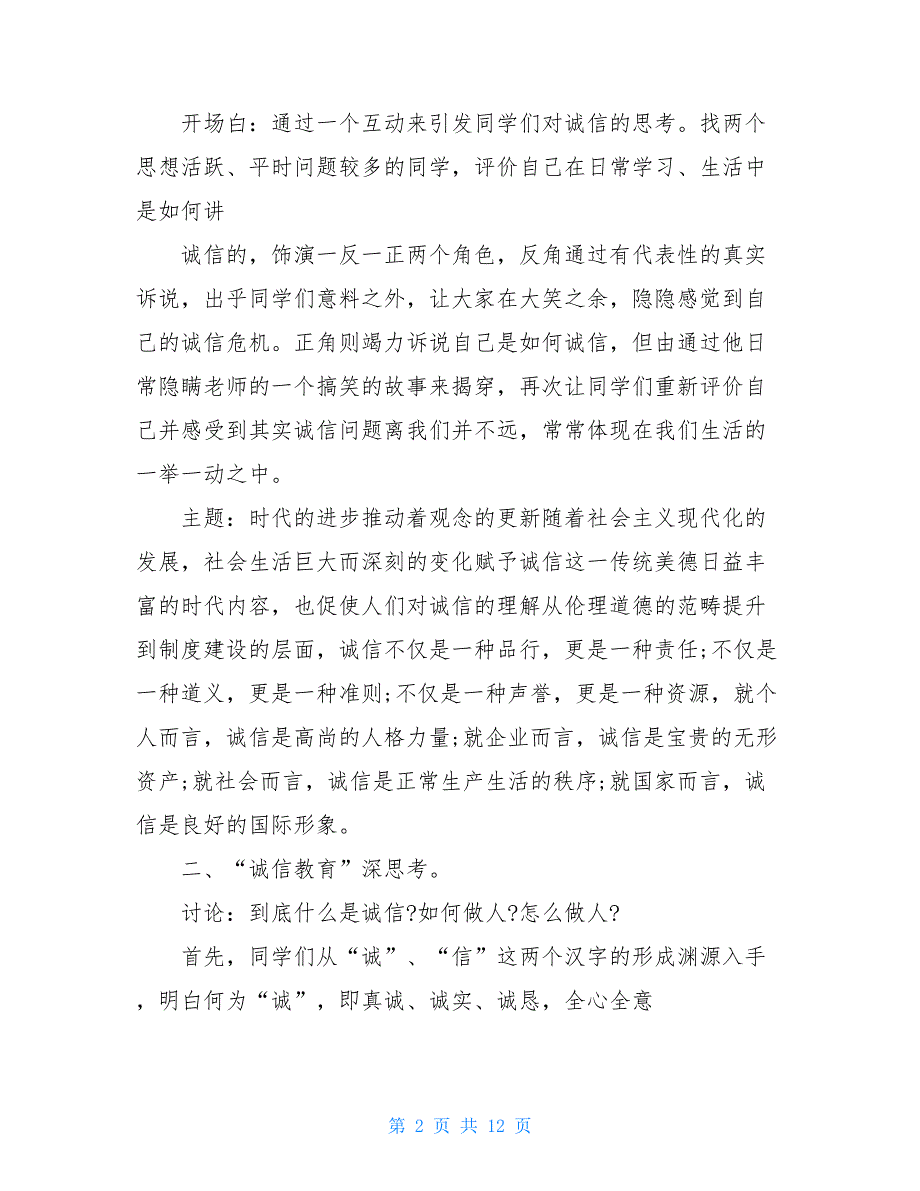 开场白：通过一个互动来引发同学们对诚信的思考。找两个
思想活跃、平时问题较多的同学，评价自己在日常学习、生活中
是如何讲
诚信的，饰演一反一正两个角色，反角通过有代表性的真实
诉说，出乎同学们意料之外，让大家在大笑之余，隐隐感觉到自
己的诚信危机。正角则竭力诉说自己是如何诚信，但由通过他日
常隐瞒老师的一个搞笑的故事来揭穿，再次让同学们重新评价自
己并感受到其实诚信问题离我们并不远，常常体现在我们生活的
一举一动之中。
主题：时代的进步推动着观念的更新随着社会主义现代化的
发展，社会生活巨大而深刻的变化赋予诚信这一传统美德日益丰
富的时代内容，也促使人们对诚信的理解从伦理道德的范畴提升
到制度建设的层面，诚信不仅是一种品行，更是一种责任;不仅是
一种道义，更是一种准则;不仅是一种声誉，更是一种资源，就个
人而言，诚信是高尚的人格力量;就企业而言，诚信是宝贵的无形
资产;就社会而言，诚信是正常生产生活的秩序;就国家而言，诚
信是良好的国际形象。
二、“诚信教育”深思考。
讨论：到底什么是诚信?如何做人?怎么做人?
首先，同学们从“诚”、“信”这两个汉字的形成渊源入手
，明白何为“诚”，即真诚、诚实、诚恳，全心全意
第 2 页 共 12 页